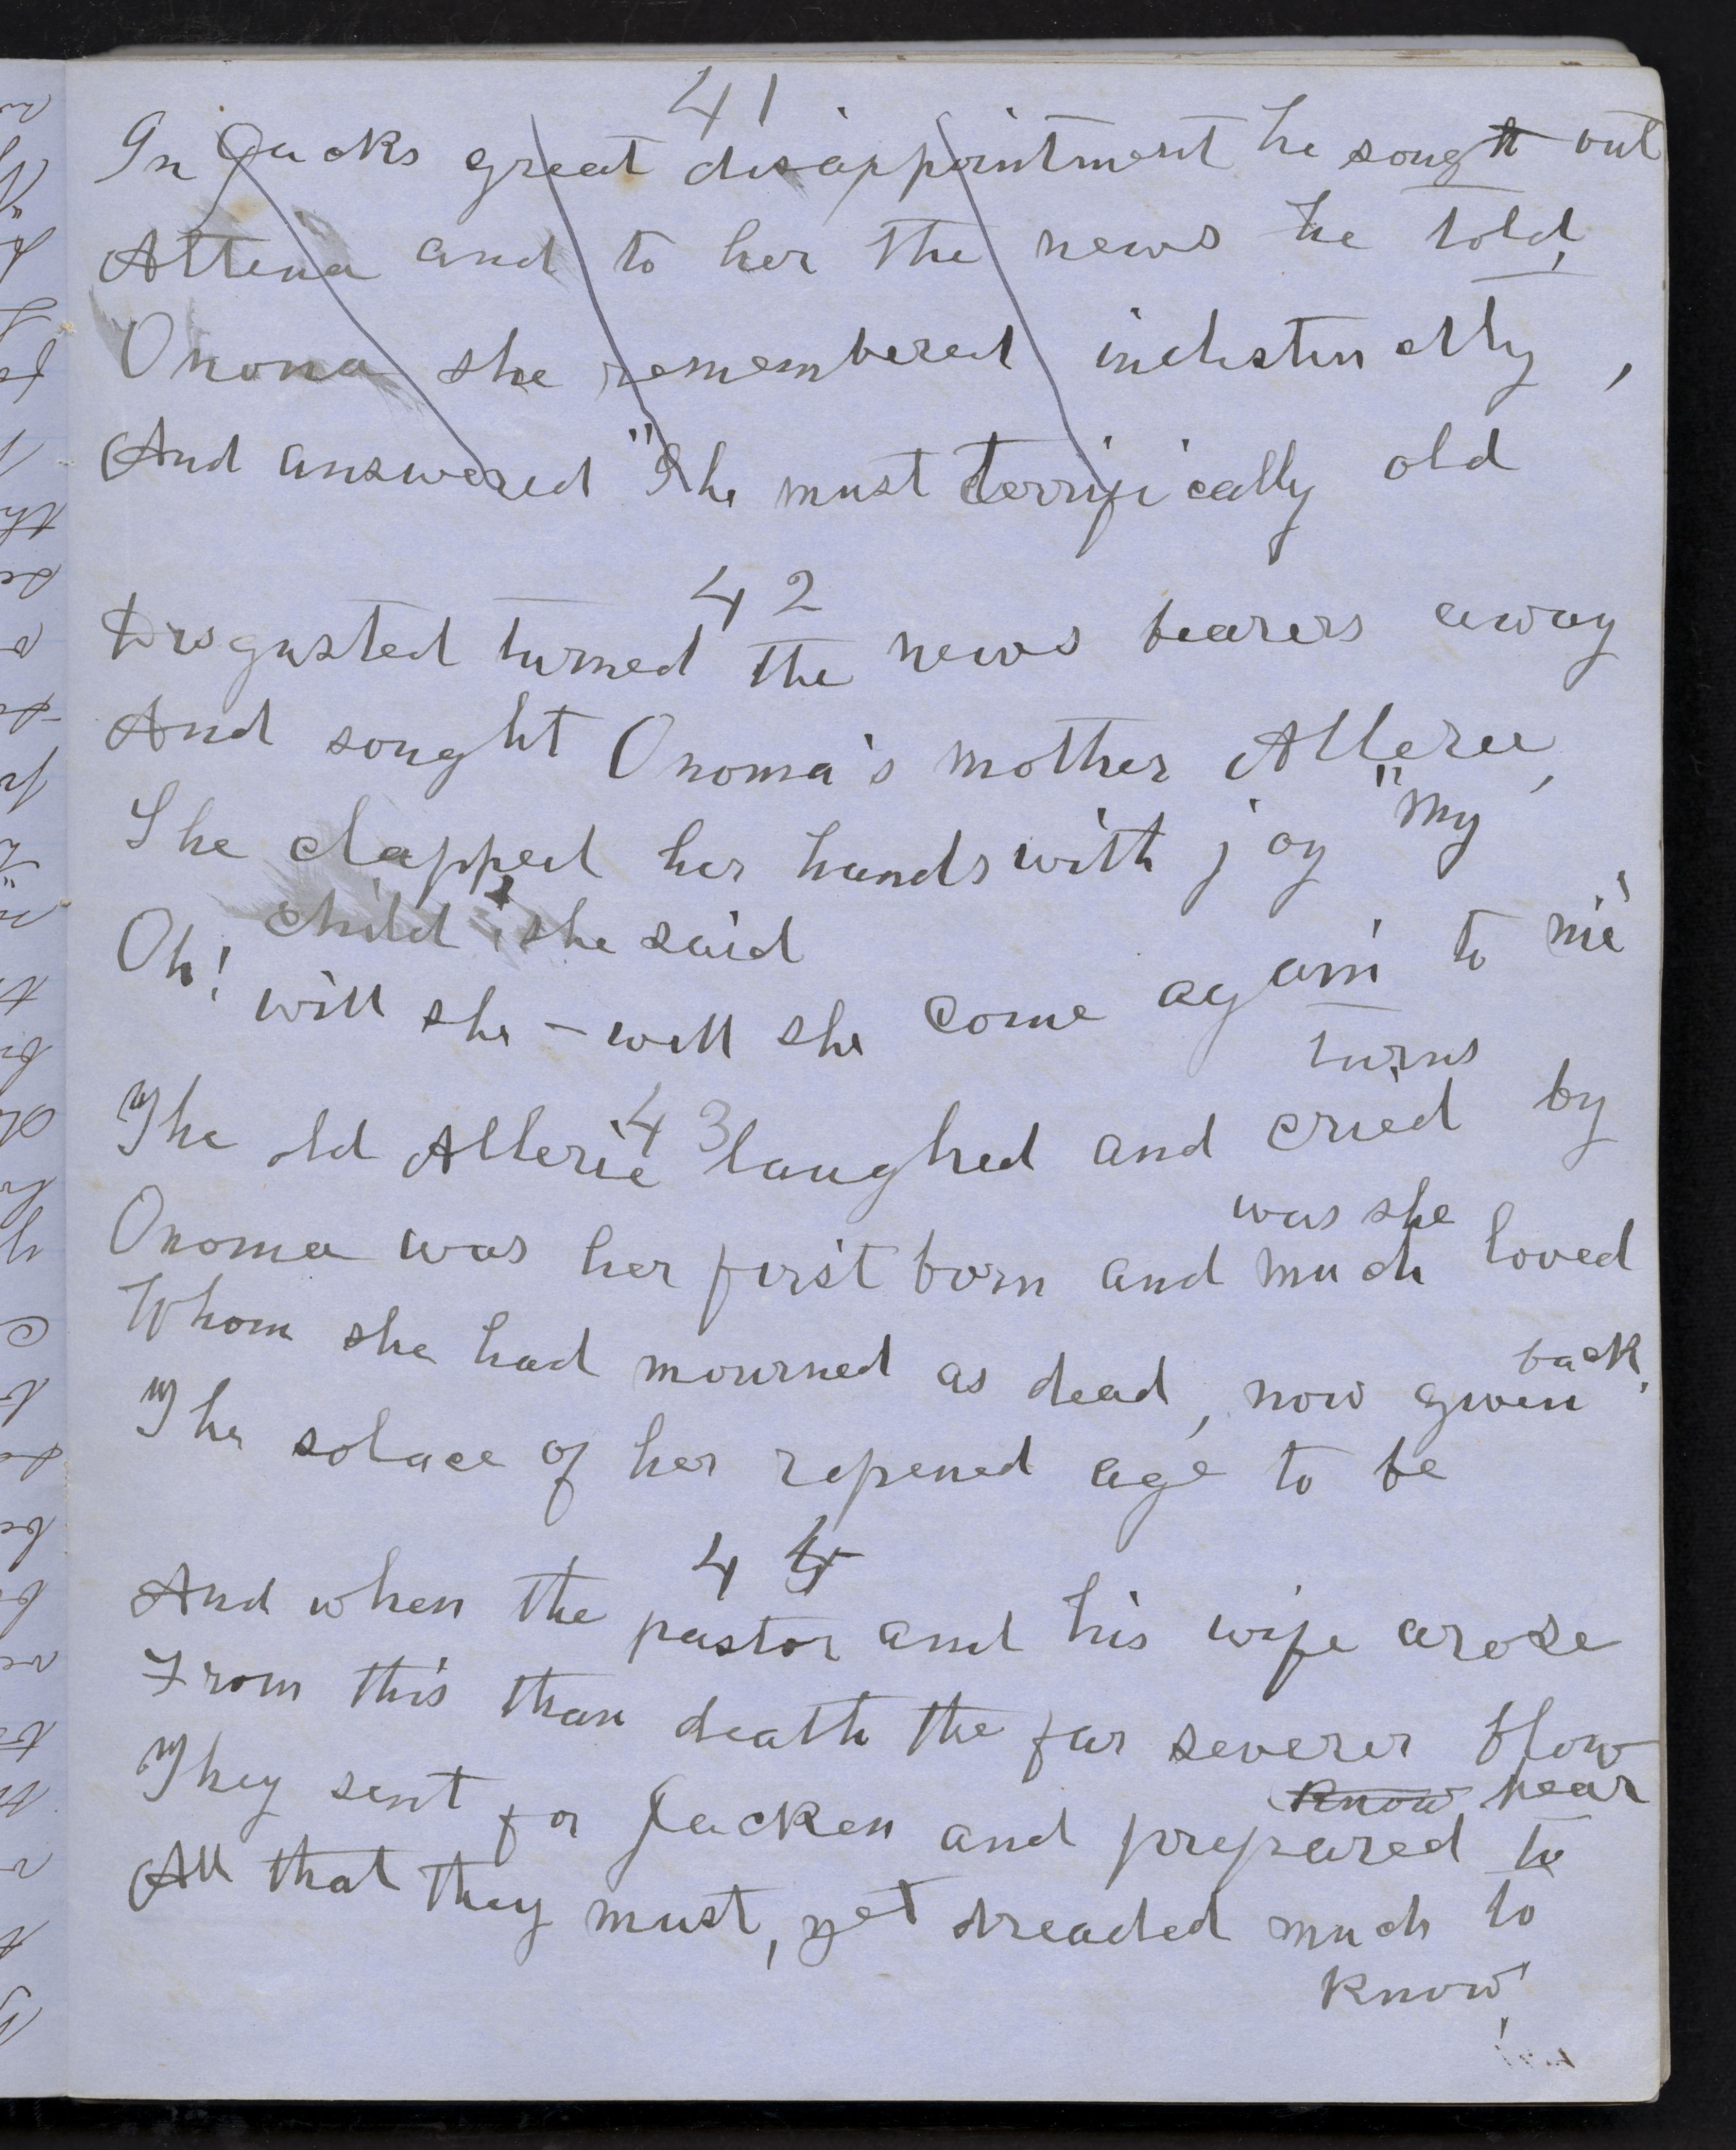 41
In Jacks great disappointment he sought out
Attena and to her the news he told,
Onoma she remembered indistinctly,
And answered "She must terrifically old
42
Disgusted turned the news bearers away
And sought Onoma's mother Alleree,
She clapped her hands with joy "My
child", she said
Oh! will she - will she come again to me'
turns
43
The old Allerie laughed and cried by
was she
Onoma was her first born and much loved
Whom she had mourned as dead, now given
back.
The solace of her ripened age to be
44
And when the pastor and his wife arose
From this than death the far severer blow
They sent for Jacken and prepared to
know hear
All that they must, yet dreaded much to
know